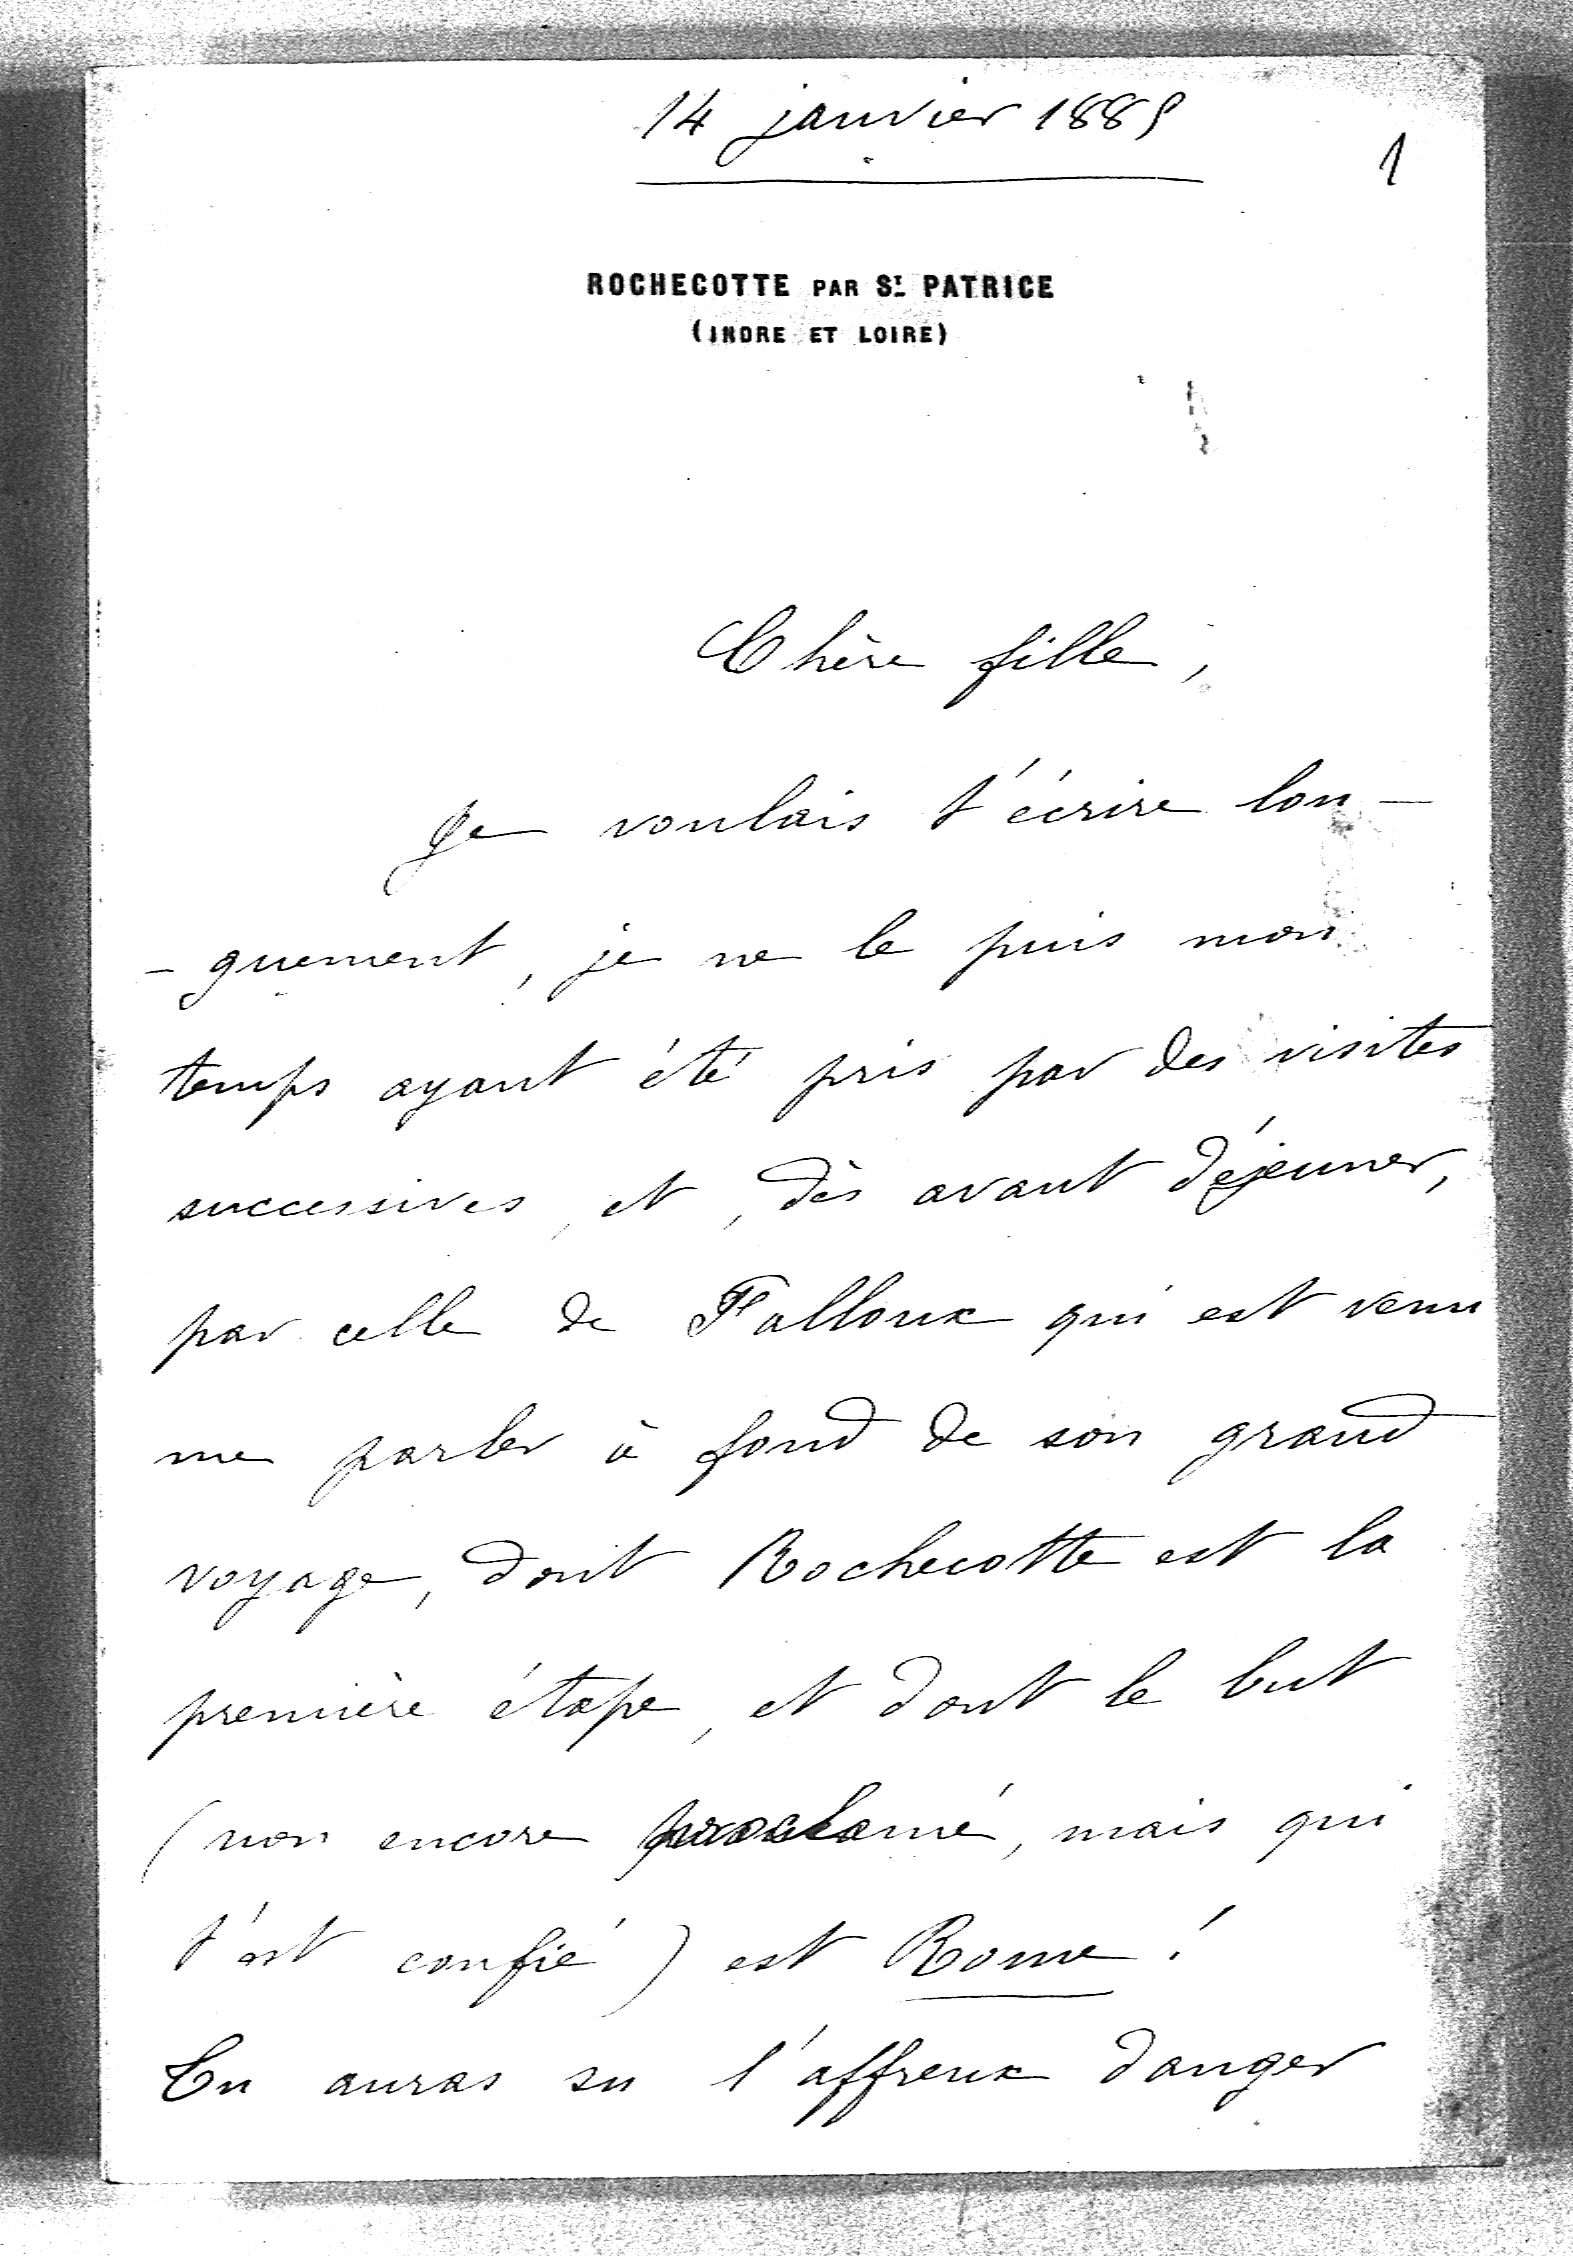 14 janvier 1885
1
ROCHECOTTE PAR ST. PATRICE
(INDRE ET LOIRE)
Chère fille,
Je voulais t'écrire lon-
-guement, je ne le puis mon
temps ayant été pris par des visites
successives, et, dès avant déjeuner,
par celle de Falloux qui est venu
me parler à fond de son grand
voyage, dont Rochecotte est la
première étape, et dont le but
(non encore proclamé, mais qui
t'est confié) est Rome !
Tu auras su l'affreux danger